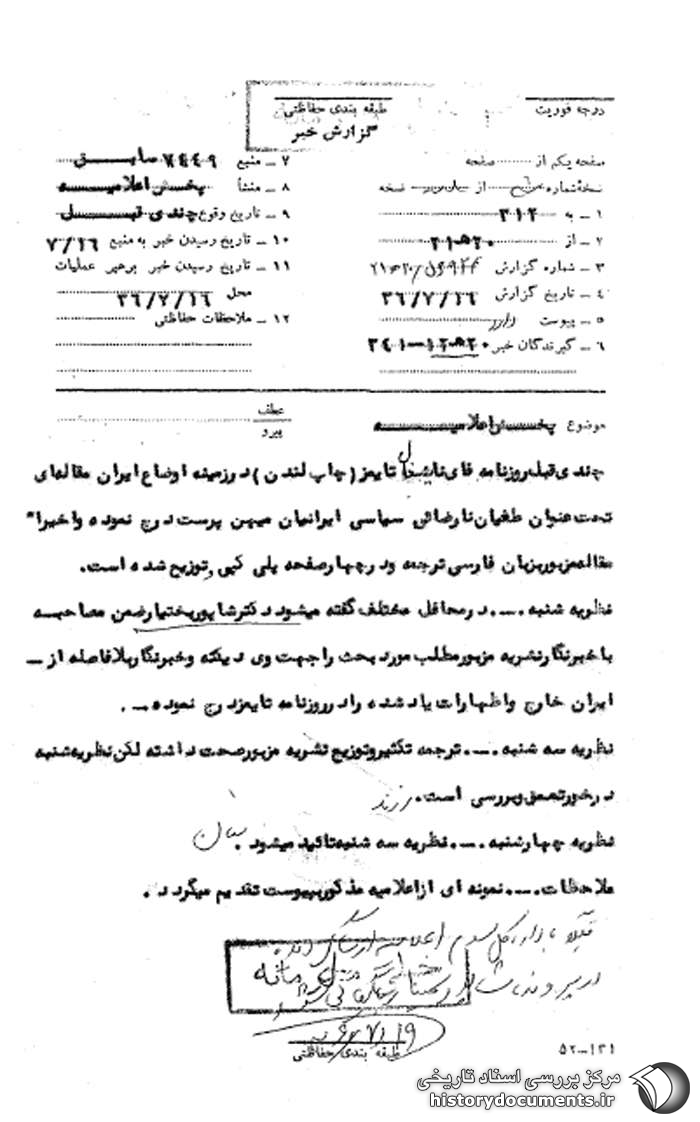 درجه فوریت
طبقه بندی حفاظتی
گزارش خبر
صفحه یکم از صفحه
نسخه شماره از نسخه
۱ ــ به ۳۱۲
۲ ــ از ۲۱ﻫ۲۰
۳ ــ شماره گزارش
۴ ــ تاریخ گزارش ۳۶/۷/۱۶
۵ ــ پیوست دارد
۶ ــ گیرندگان خبر
۷ ــ منبع ۷۶۴۹ سابق
۸ ــ منشأ پخش اعلامیه
۹ ــ تاریخ وقوع چندی قبل
۱۰ ــ تاریخ رسیدن خبر به منبع ۷/۱۶
۱۱ ــ تاریخ رسیدن خبر برهبر عملیات
محل ۳۶/۷/۱۶
۱۲ ــ ملاحظات حفاظتی
موضوع پخش اعلامیه
عطف
پیرو
چندی قبل روزنامه فای نانشیال تایمز (چاپ لندن) در زمینه اوضاع ایران مقاله‌ای
تحت عنوان طغیان نارضائی سیاسی ایرانیان میهن پرست درج نموده و اخیرا"
مقاله مزبور بزبان فارسی ترجمه و در چهار صفحه پلی کپی و توزیع شده است.
نظریه شنبه ــ.ــ. در محافل مختلف گفته میشود دکتر شاپور بختیار ضمن مصاحبه
با خبرنگار نشریه مزبور مطلب مورد بحث را جهت وی دیکته و خبرنگار بلافاصله از ــ
ایران خارج و اظهارات یاد شده را در روزنامه تایمز درج نموده ــ.
نظریه سه شنبه ــ.ــ. ترجمه تکثیر و توزیع نشریه مزبور صحت داشته لکن نظریه شنبه
در خور تعمق و بررسی است. رزند
نظریه چهارشنبه ــ.ــ. نظریه سه شنبه تائید میشود.
ملاحظات ــ.ــ. نمونه ای از اعلامیه مذکور بپیوست تقدیم میگردد.
طبقه بندی حفاظتی
۵۲ــ۱۳۱
مرکز بررسی اسناد تاریخی
historydocuments.ir